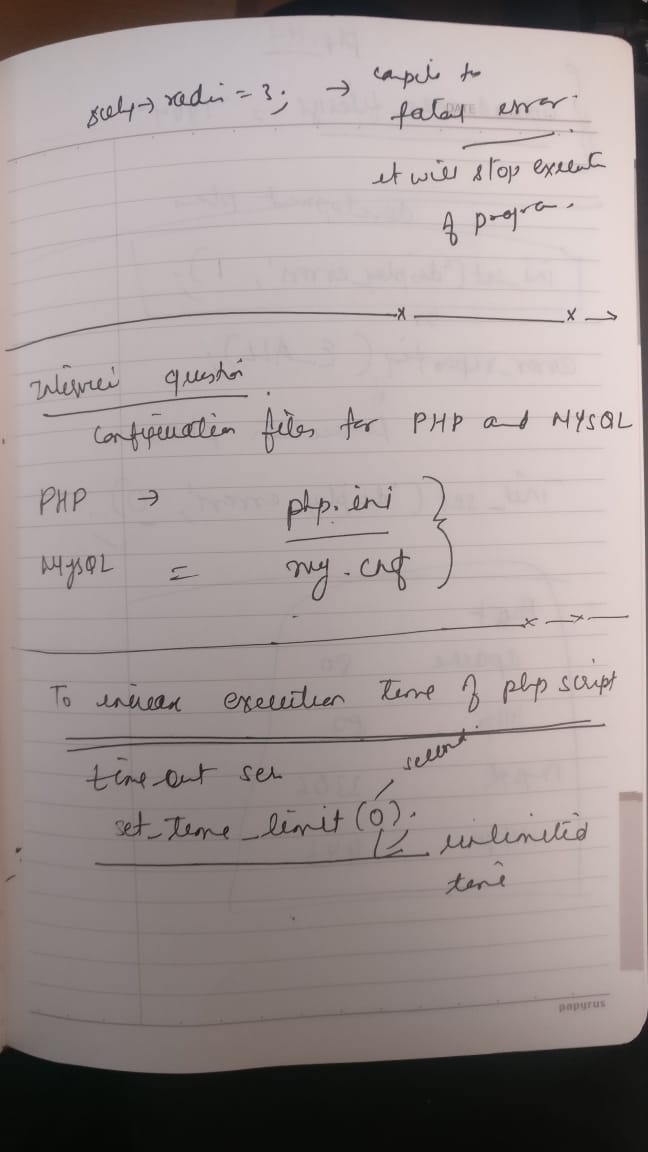 → radius = 3; → compile to
fatal error.
it will stop execute
of program.
Interview question
Configuration files for PHP and MYSQL
PHP → php.ini
MySQL = my.cnf
To increase execution time of php script
second
time out
set_time_limit(0).
unlimited
time
papyrus